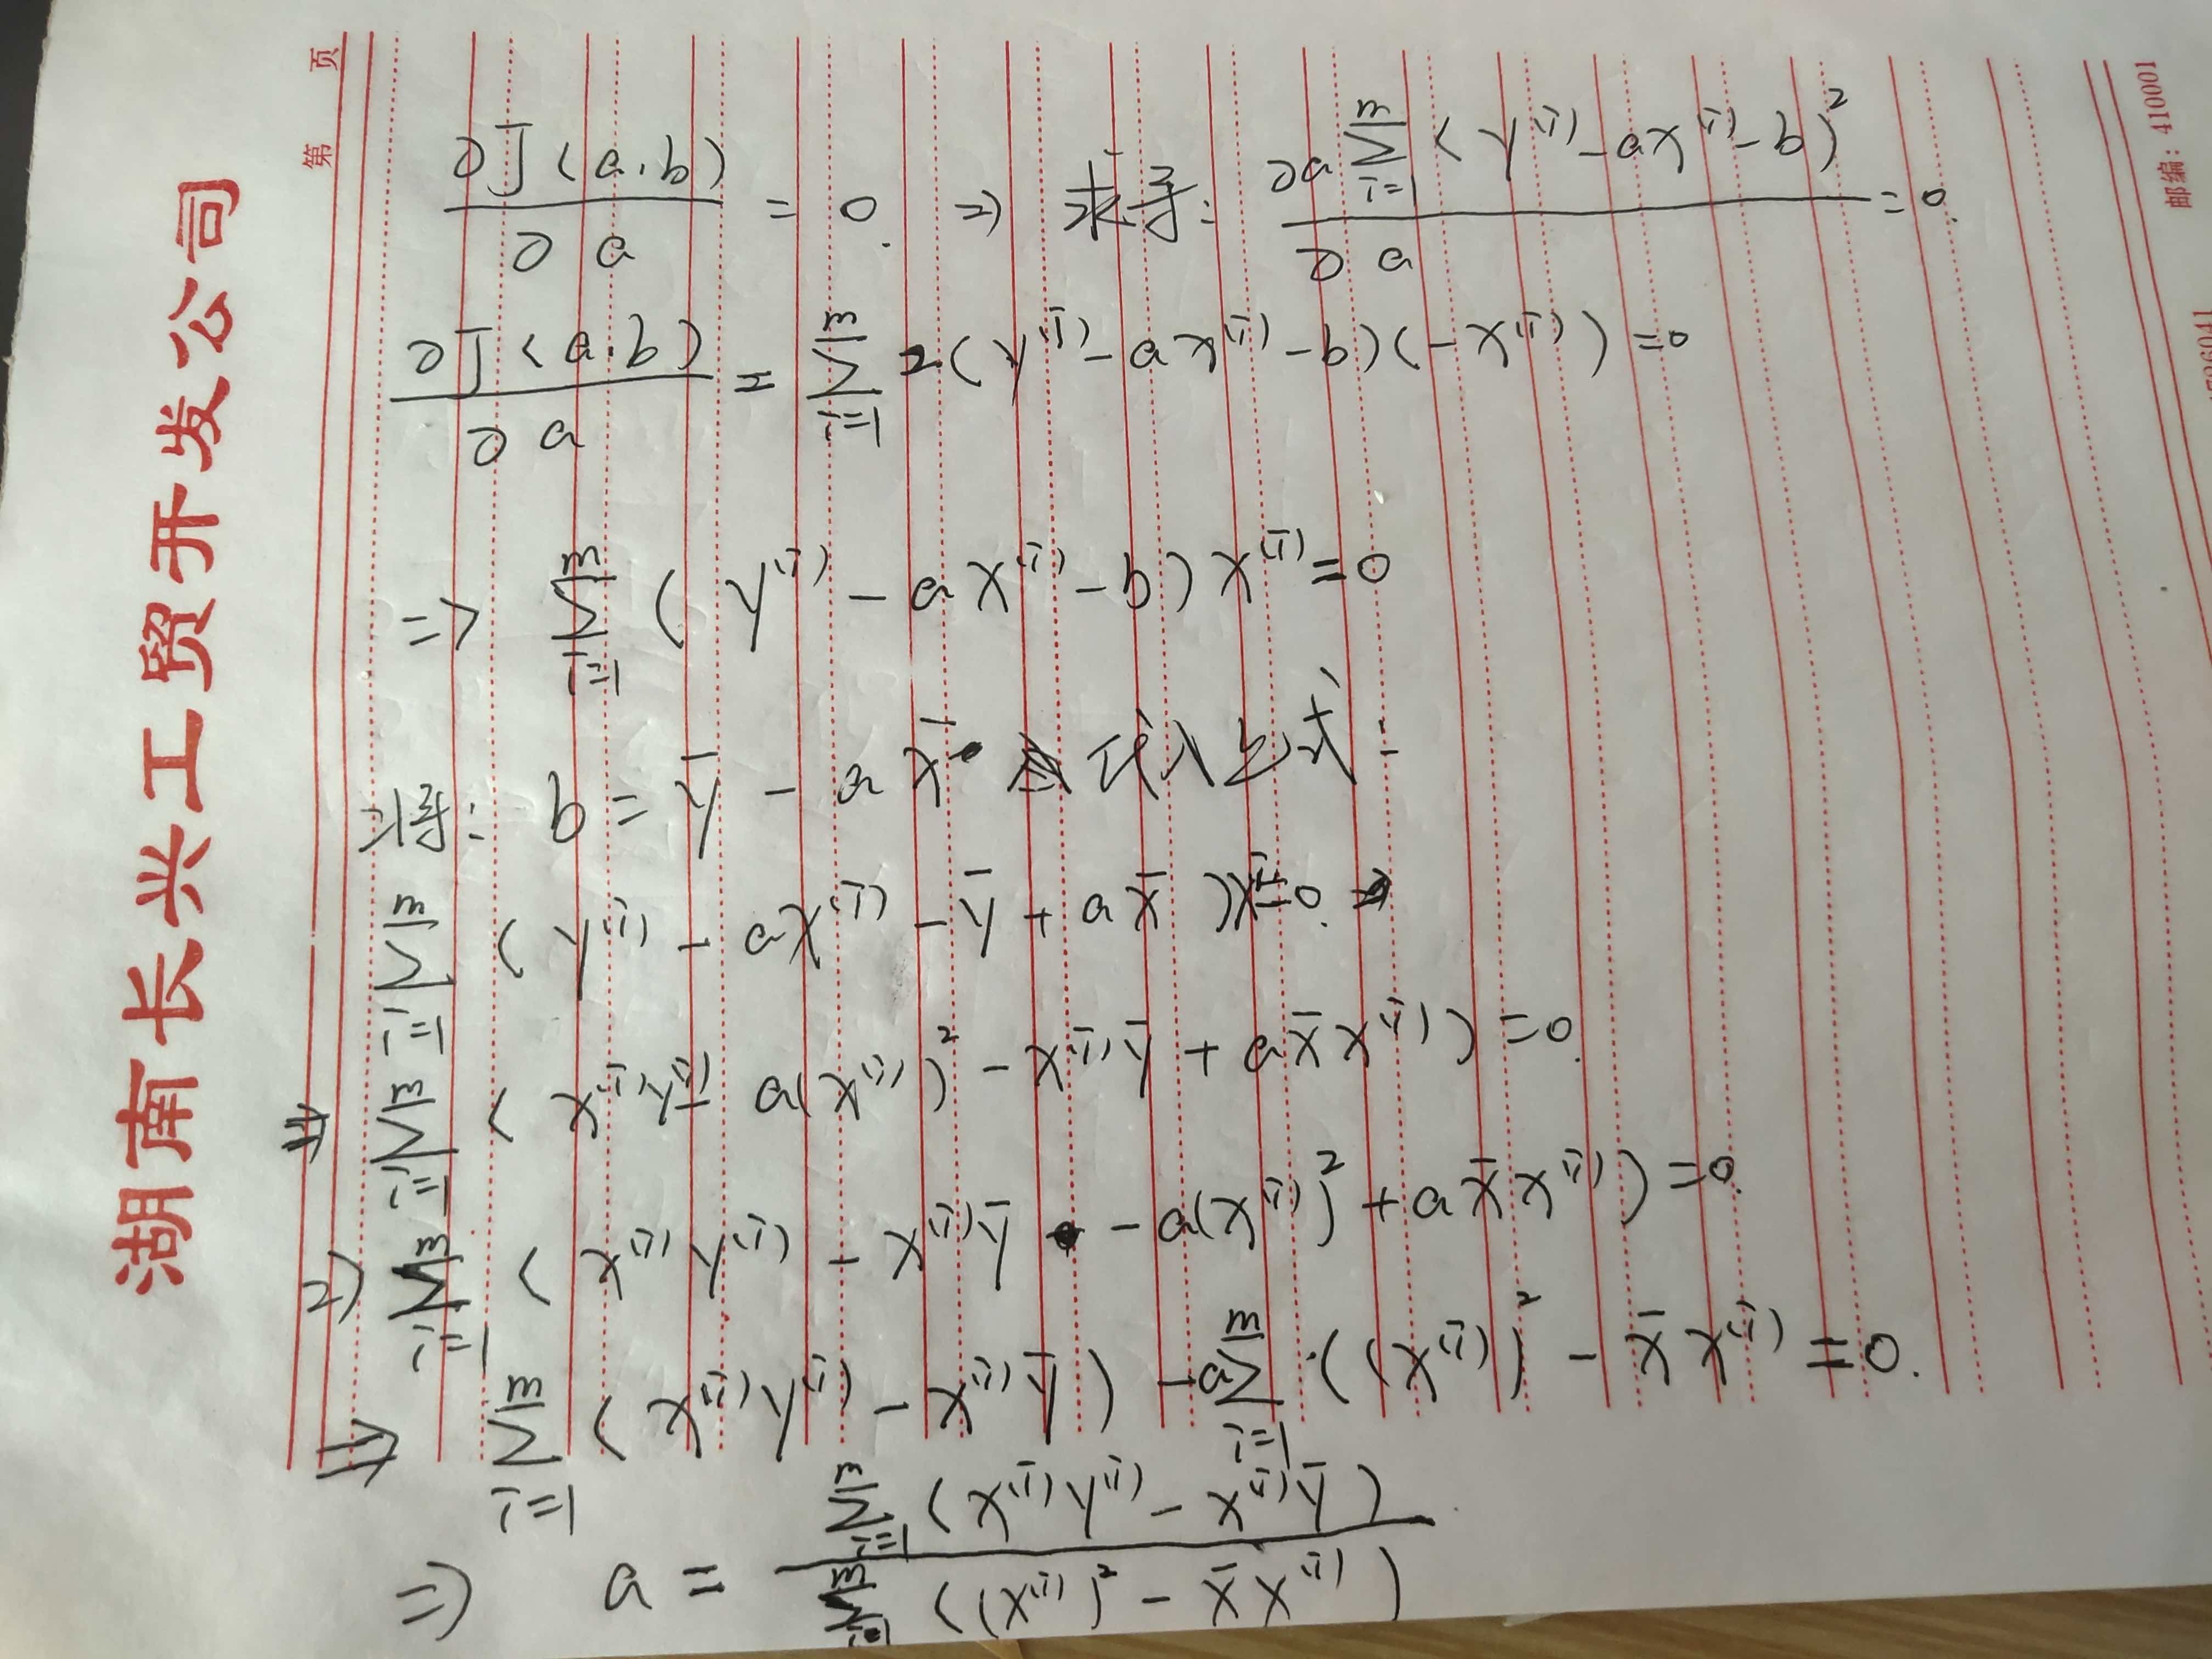 湖南长兴工贸开发公司
第 页
∂J(a,b)/∂a = 0. => 求导: ∂a∑_{i=1}^{m}(y^{(i)} - ax^{(i)} - b)^2/∂a = 0.
∂J(a,b)/∂a = ∑_{i=1}^{m} 2(y^{(i)} - ax^{(i)} - b)(-x^{(i)}) = 0
=> ∑_{i=1}^{m} (y^{(i)} - ax^{(i)} - b)x^{(i)} = 0
将: b = ȳ - ax̄ 代入上式:
∑_{i=1}^{m} (y^{(i)} - ax^{(i)} - ȳ + ax̄)x^{(i)} = 0.
=> ∑_{i=1}^{m} (x^{(i)}y^{(i)} - a(x^{(i)})^2 - x^{(i)}ȳ + ax̄x^{(i)}) = 0.
=> ∑_{i=1}^{m} (x^{(i)}y^{(i)} - x^{(i)}ȳ - a(x^{(i)})^2 + ax̄x^{(i)}) = 0.
=> ∑_{i=1}^{m} (x^{(i)}y^{(i)} - x^{(i)}ȳ) - a∑_{i=1}^{m} ((x^{(i)})^2 - x̄x^{(i)} = 0.
=> a = ∑_{i=1}^{m} (x^{(i)}y^{(i)} - x^{(i)}ȳ)/∑_{i=1}^{m} ((x^{(i)})^2 - x̄x^{(i)})
邮编: 410001